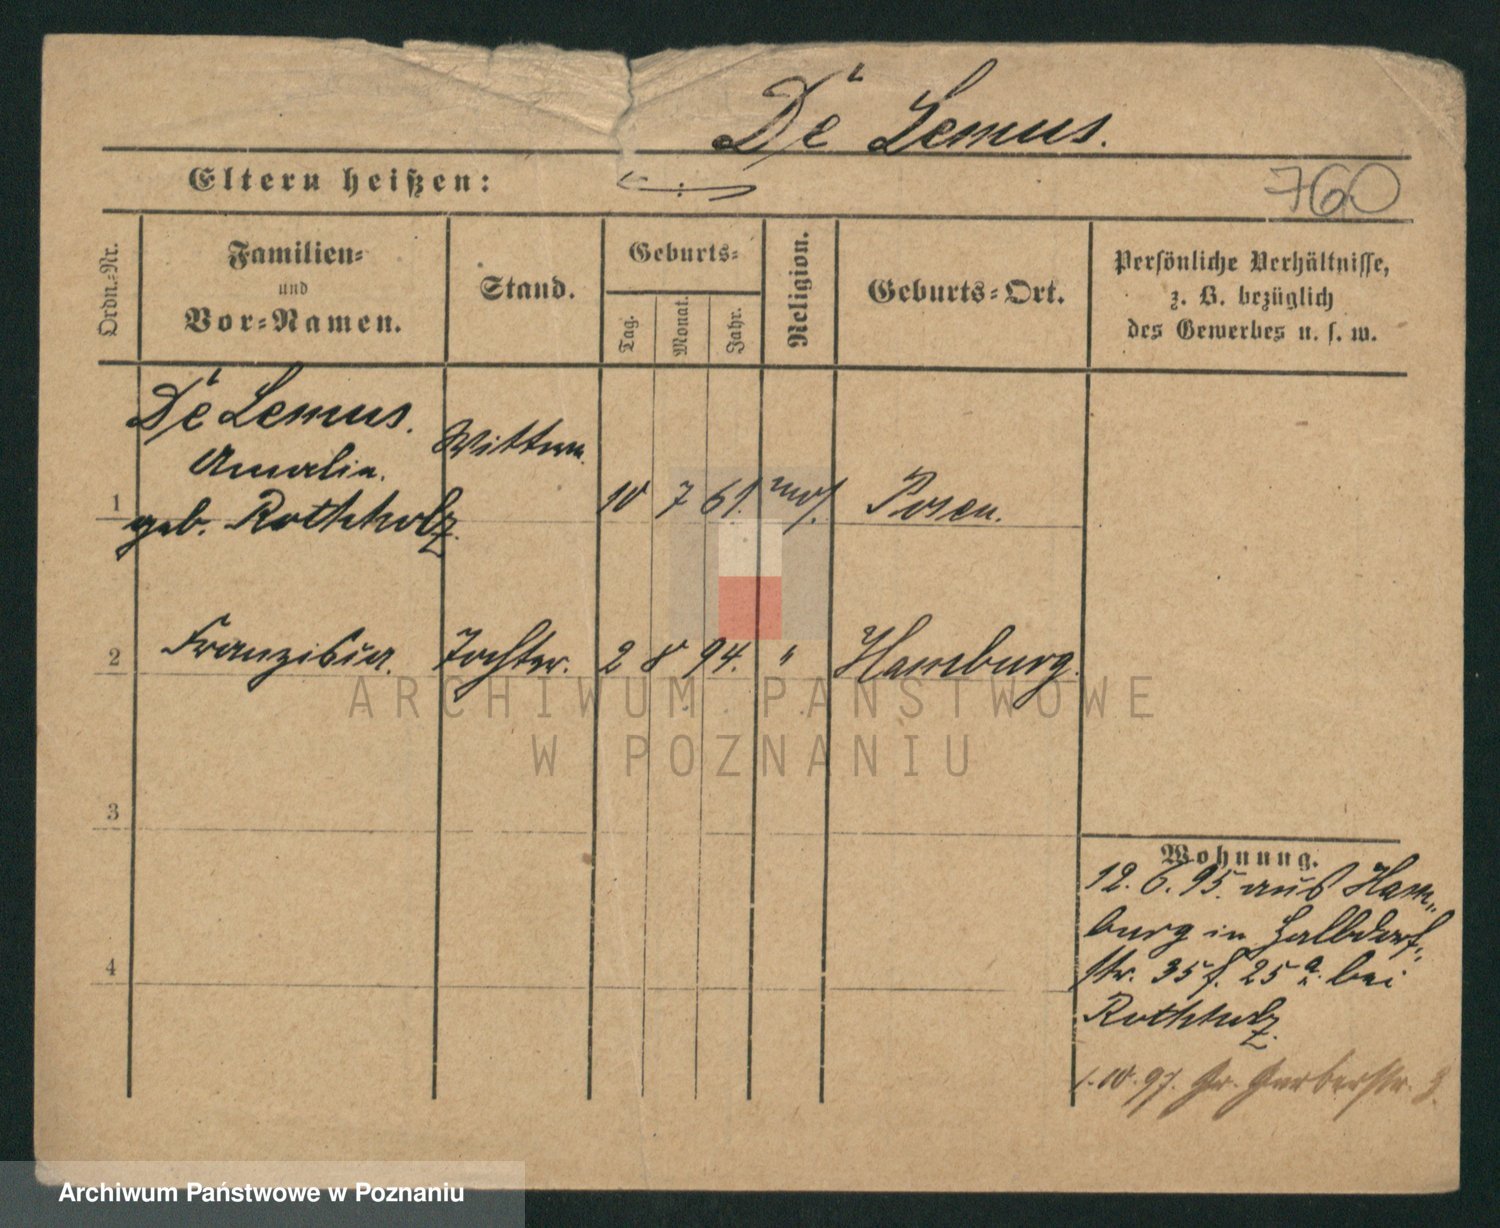 Dé Lemus.
Eltern heißen:
760
Ordn.-Nr.
Familien-
und
Vor-Namen.
Stand.
Geburts-
Tag.
Monat.
Jahr.
Religion.
Geburts-Ort.
Persönliche Verhältnisse,
z. B. bezüglich
des Gewerbes u. s. w.
Dé Lemus.
Amalie.
geb. Rothholz.
Wittwe.
1
10 7 61. mos. Posen.
2 Franziska. Tochter. 2 8 94. " Hamburg.
ARCHIWUM PAŃSTWOWE
W POZNANIU
3
4
Wohnung.
12. 6. 95. aus Ham-
burg in Halbdorf-
str. 35 f. 25 a. bei
Rothholz.
1. 10. 97. Gr. Gerberstr. 3.
Archiwum Państwowe w Poznaniu